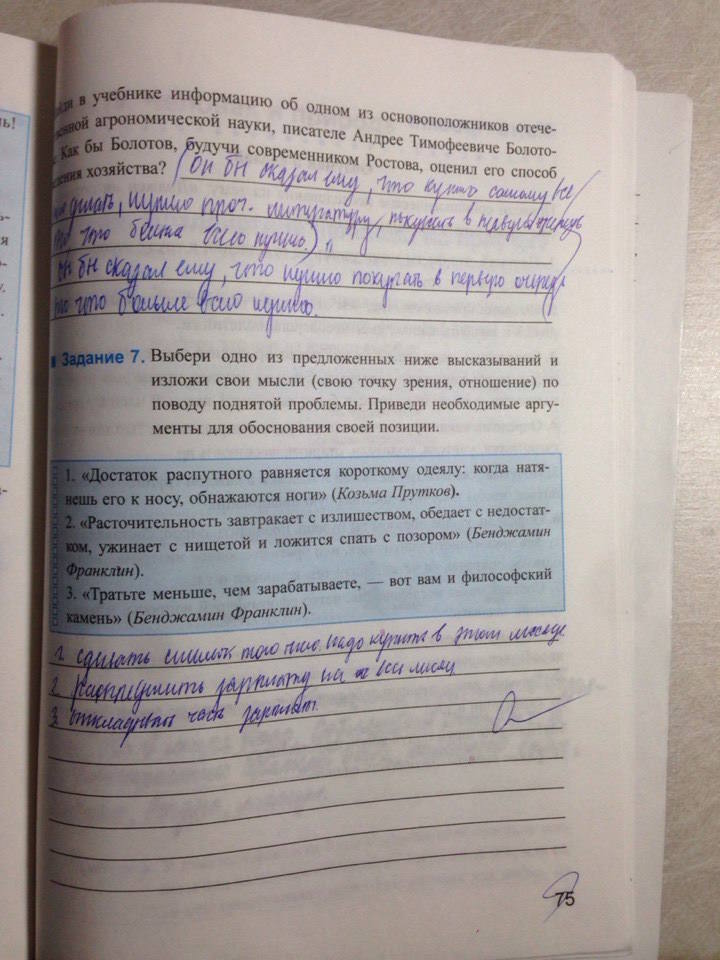 ь!
йди в учебнике информацию об одном из основоположников отече-
венной агрономической науки, писателе Андрее Тимофеевиче Болото-
. Как бы Болотов, будучи современником Ростова, оценил его способ
дения хозяйства? (Он бы сказал ему, что нужно самому все
делать, нужно проч. литературу, покупать в первую очередь
то что больше всего нужно.)
Он бы сказал ему, что нужно покупать в первую очередь
то что больше всего нужно.
Задание 7. Выбери одно из предложенных ниже высказываний и
изложи свои мысли (свою точку зрения, отношение) по
поводу поднятой проблемы. Приведи необходимые аргу-
менты для обоснования своей позиции.
1. «Достаток распутного равняется короткому одеялу: когда натя-
нешь его к носу, обнажаются ноги» (Козьма Прутков).
2. «Расточительность завтракает с излишеством, обедает с недостат-
ком, ужинает с нищетой и ложится спать с позором» (Бенджамин
Франклин).
3. «Тратьте меньше, чем зарабатываете, — вот вам и философский
камень» (Бенджамин Франклин).
1. сделать список того что надо купить в этом месяце
2. распределить зарплату на весь месяц
3. откладывать часть зарплат.
75